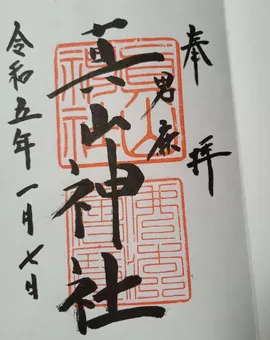 奉拝
男鹿
真山神社
令和五年一月七日